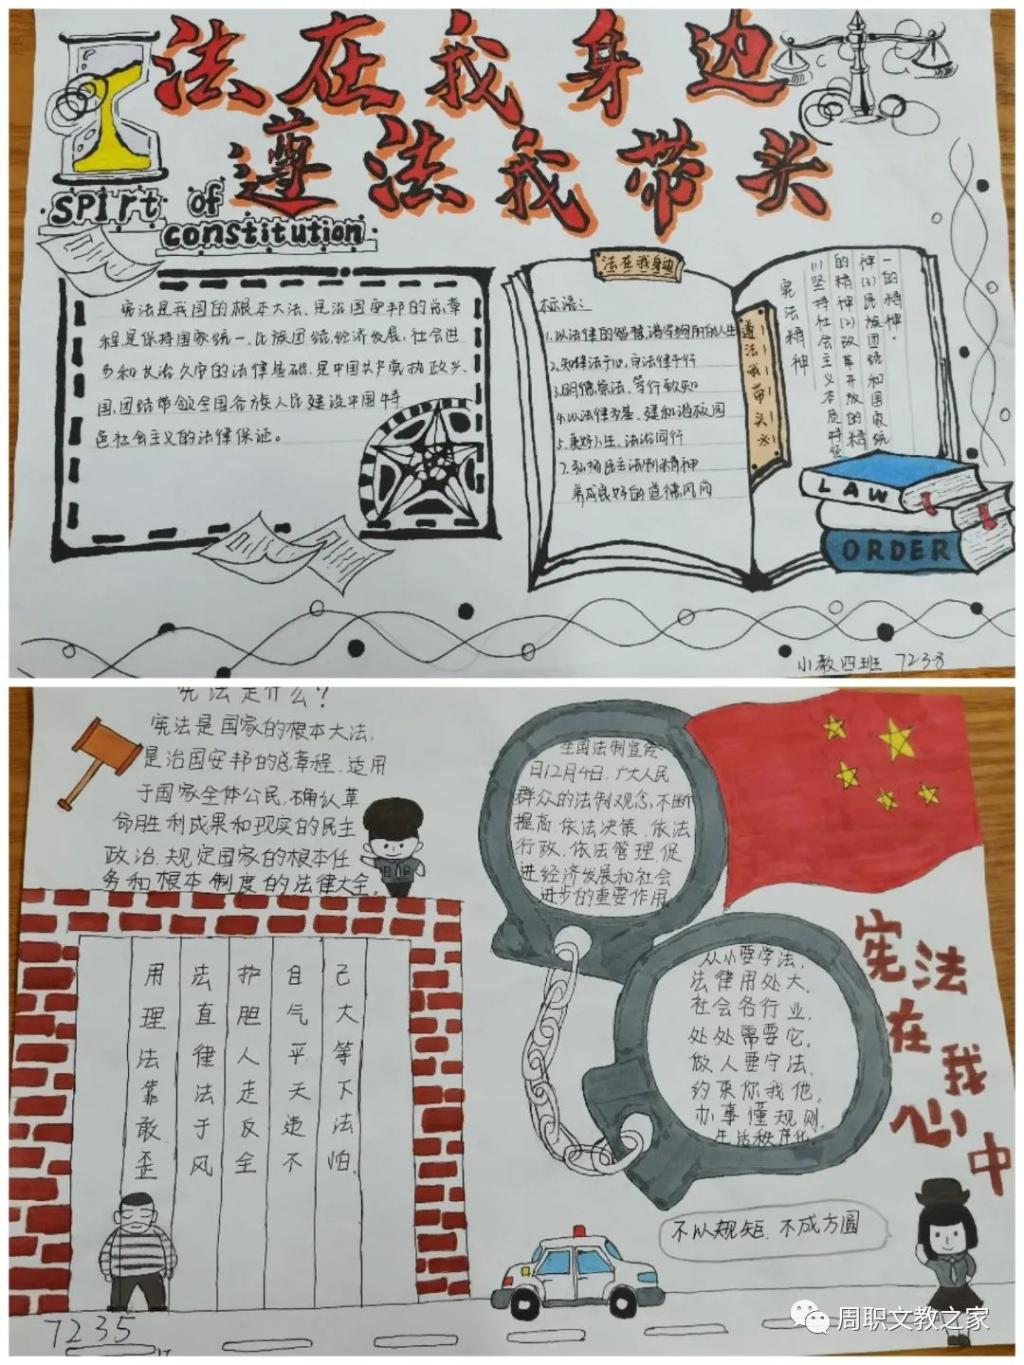 法在我身边
遵法我带头
SPIrt of
constitution
宪法是我国的根本大法，是治国安邦的总章
程是保持国家统一、民族团结、经济发展、社会进
步和长治久安的法律基础，是中国共产党执政兴
国，团结带领全国各族人民建设中国特
色社会主义的法律保证。
法在我身边
标语：
1.以法律的智慧，
2.知法于心，守法律于行
3.明德
4.以法律为基，建和谐校园
5.美好人生，法治同行
7.弘扬民主法制精神
养成良好的道德风尚
遵法我带头
宪法精神
(1)坚持社会主义本质特征
的精神(2)改革开放的精
神(3)民族团结和国家统
一的精神。
LAW
ORDER
小教四班 7238
宪法是什么？
宪法是国家的根本大法，
是治国安邦的总章程，适用
于国家全体公民，确认革
命胜利成果和现实的民主
政治，规定国家的根本任
务和根本制度的法律大全。
全国法制宣传
日12月4日，广大人民
群众的法制观念，不断
提高，依法决策，依法
行政，依法管理，促
进经济发展和社会
进步的重要作用
从小要学法，
法律用处大，
社会各行业，
处处需要它，
做人要守法，
约束你我他，
办事懂规则，
生活秩序化
宪法在我心中
用法护自己
理直胆气大
法律人平等
靠法走天下
敢于反违法
歪风全不怕。
不以规矩，不成方圆
7235
周职文教之家